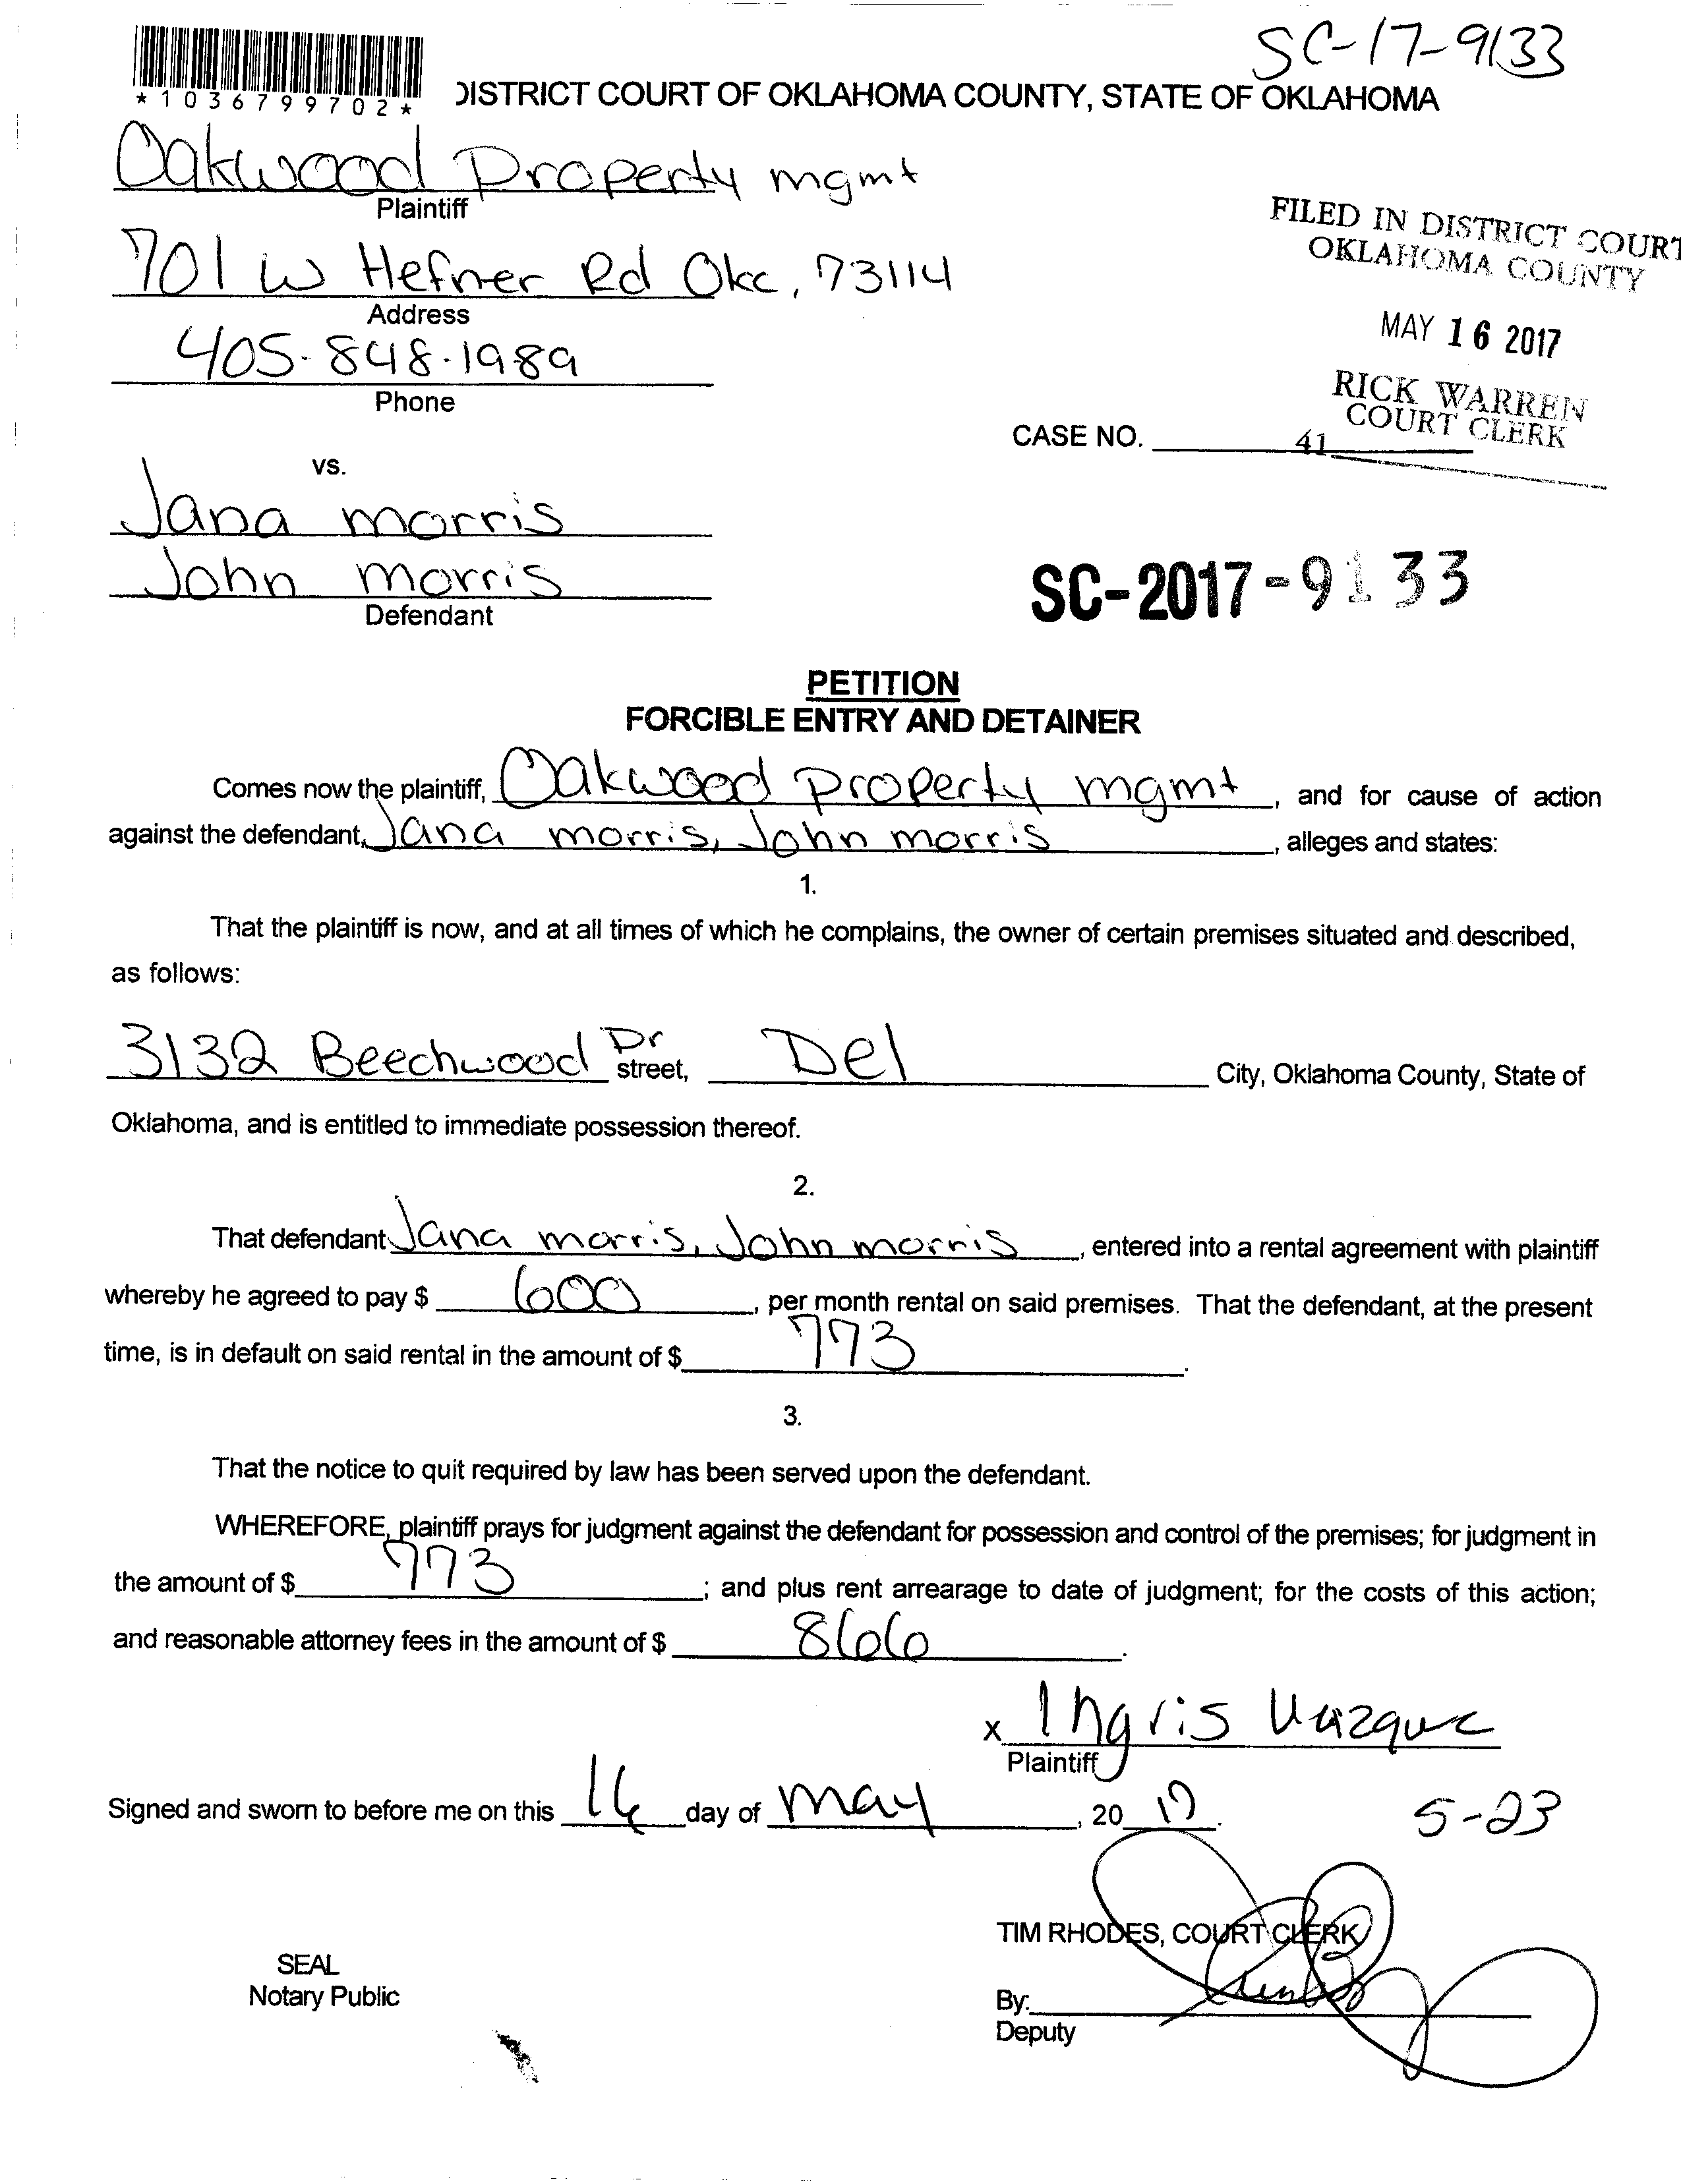 SC-17-9133
*1036799702*
DISTRICT COURT OF OKLAHOMA COUNTY, STATE OF OKLAHOMA
Oakwood Property mgmt
Plaintiff
701 W Hefner Rd Okc, 73114
Address
405-848-1989
Phone
FILED IN DISTRICT COURT
OKLAHOMA COUNTY
MAY 16 2017
RICK WARREN
COURT CLERK
CASE NO.
41
vs.
Jana morris
John morris
Defendant
SC-2017-9133
PETITION
FORCIBLE ENTRY AND DETAINER
Comes now the plaintiff, Oakwood property mgmt, and for cause of action
against the defendant, Jana morris, John morris, alleges and states:
1.
That the plaintiff is now, and at all times of which he complains, the owner of certain premises situated and described,
as follows:
3132 Beechwood Dr street, Del City, Oklahoma County, State of
Oklahoma, and is entitled to immediate possession thereof.
2.
That defendant Jana morris, John morris, entered into a rental agreement with plaintiff
whereby he agreed to pay $ 600, per month rental on said premises. That the defendant, at the present
time, is in default on said rental in the amount of $ 773.
3.
That the notice to quit required by law has been served upon the defendant.
WHEREFORE, plaintiff prays for judgment against the defendant for possession and control of the premises; for judgment in
the amount of $ 773; and plus rent arrearage to date of judgment; for the costs of this action;
and reasonable attorney fees in the amount of $ 866.
x Ingris
Plaintiff
Signed and sworn to before me on this 16 day of may, 20 17.
5-23
TIM RHODES, COURT CLERK
SEAL
Notary Public
By:
Deputy